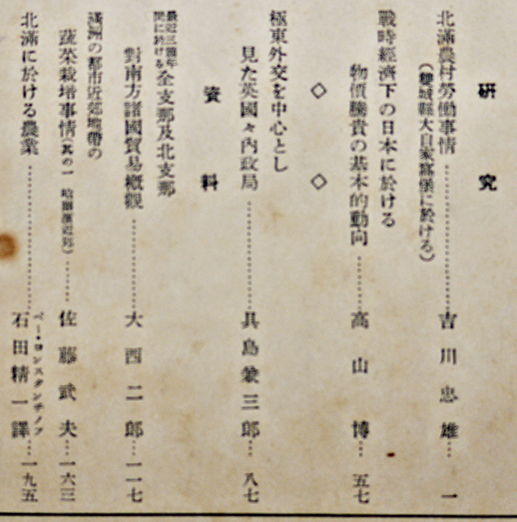 研究
北滿農村勞働事情……吉川忠雄…一
(雙城縣大白家窩堡に於ける)
戰時經濟下の日本に於ける
物價騰貴の基本的動向……高山博…五七
◇ ◇
極東外交を中心とし
見た英國々內政局……具島兼三郎…八七
資料
最近三箇年間に於ける全支那及北支那
對南方諸國貿易槪觀……大西二郎…一一七
滿洲の都市近郊地帶の
蔬菜栽培事情(其の一 哈爾濱近郊)……佐藤武夫…一六三
ベー・コンスタンチノフ
北滿に於ける農業……石田精一譯…一九五